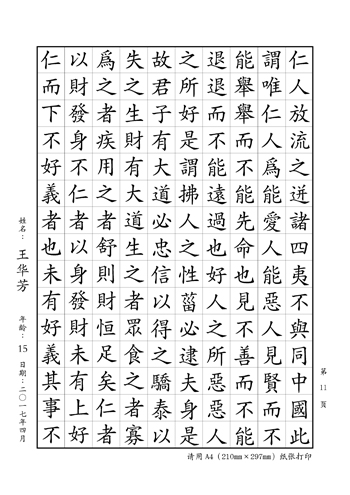 仁人放流之迸諸四夷不與同中國此
謂唯仁人爲能愛人能惡人見賢而不
能舉舉而不能先命也見不善而不能
退退而不能遠過也好人之所惡惡人
之所好是謂拂人之性菑必逮夫身是
故君子有大道必忠信以得之驕泰以
失之生財有大道生之者眾食之者寡
爲之者疾用之者舒則財恒足矣仁者
以財發身不仁者以身發財未有上好
仁而下不好義者也未有好義其事不
姓名：王华芳 年龄：15 日期：二〇一七年四月
第 11 页
请用 A4（210mm×297mm）纸张打印